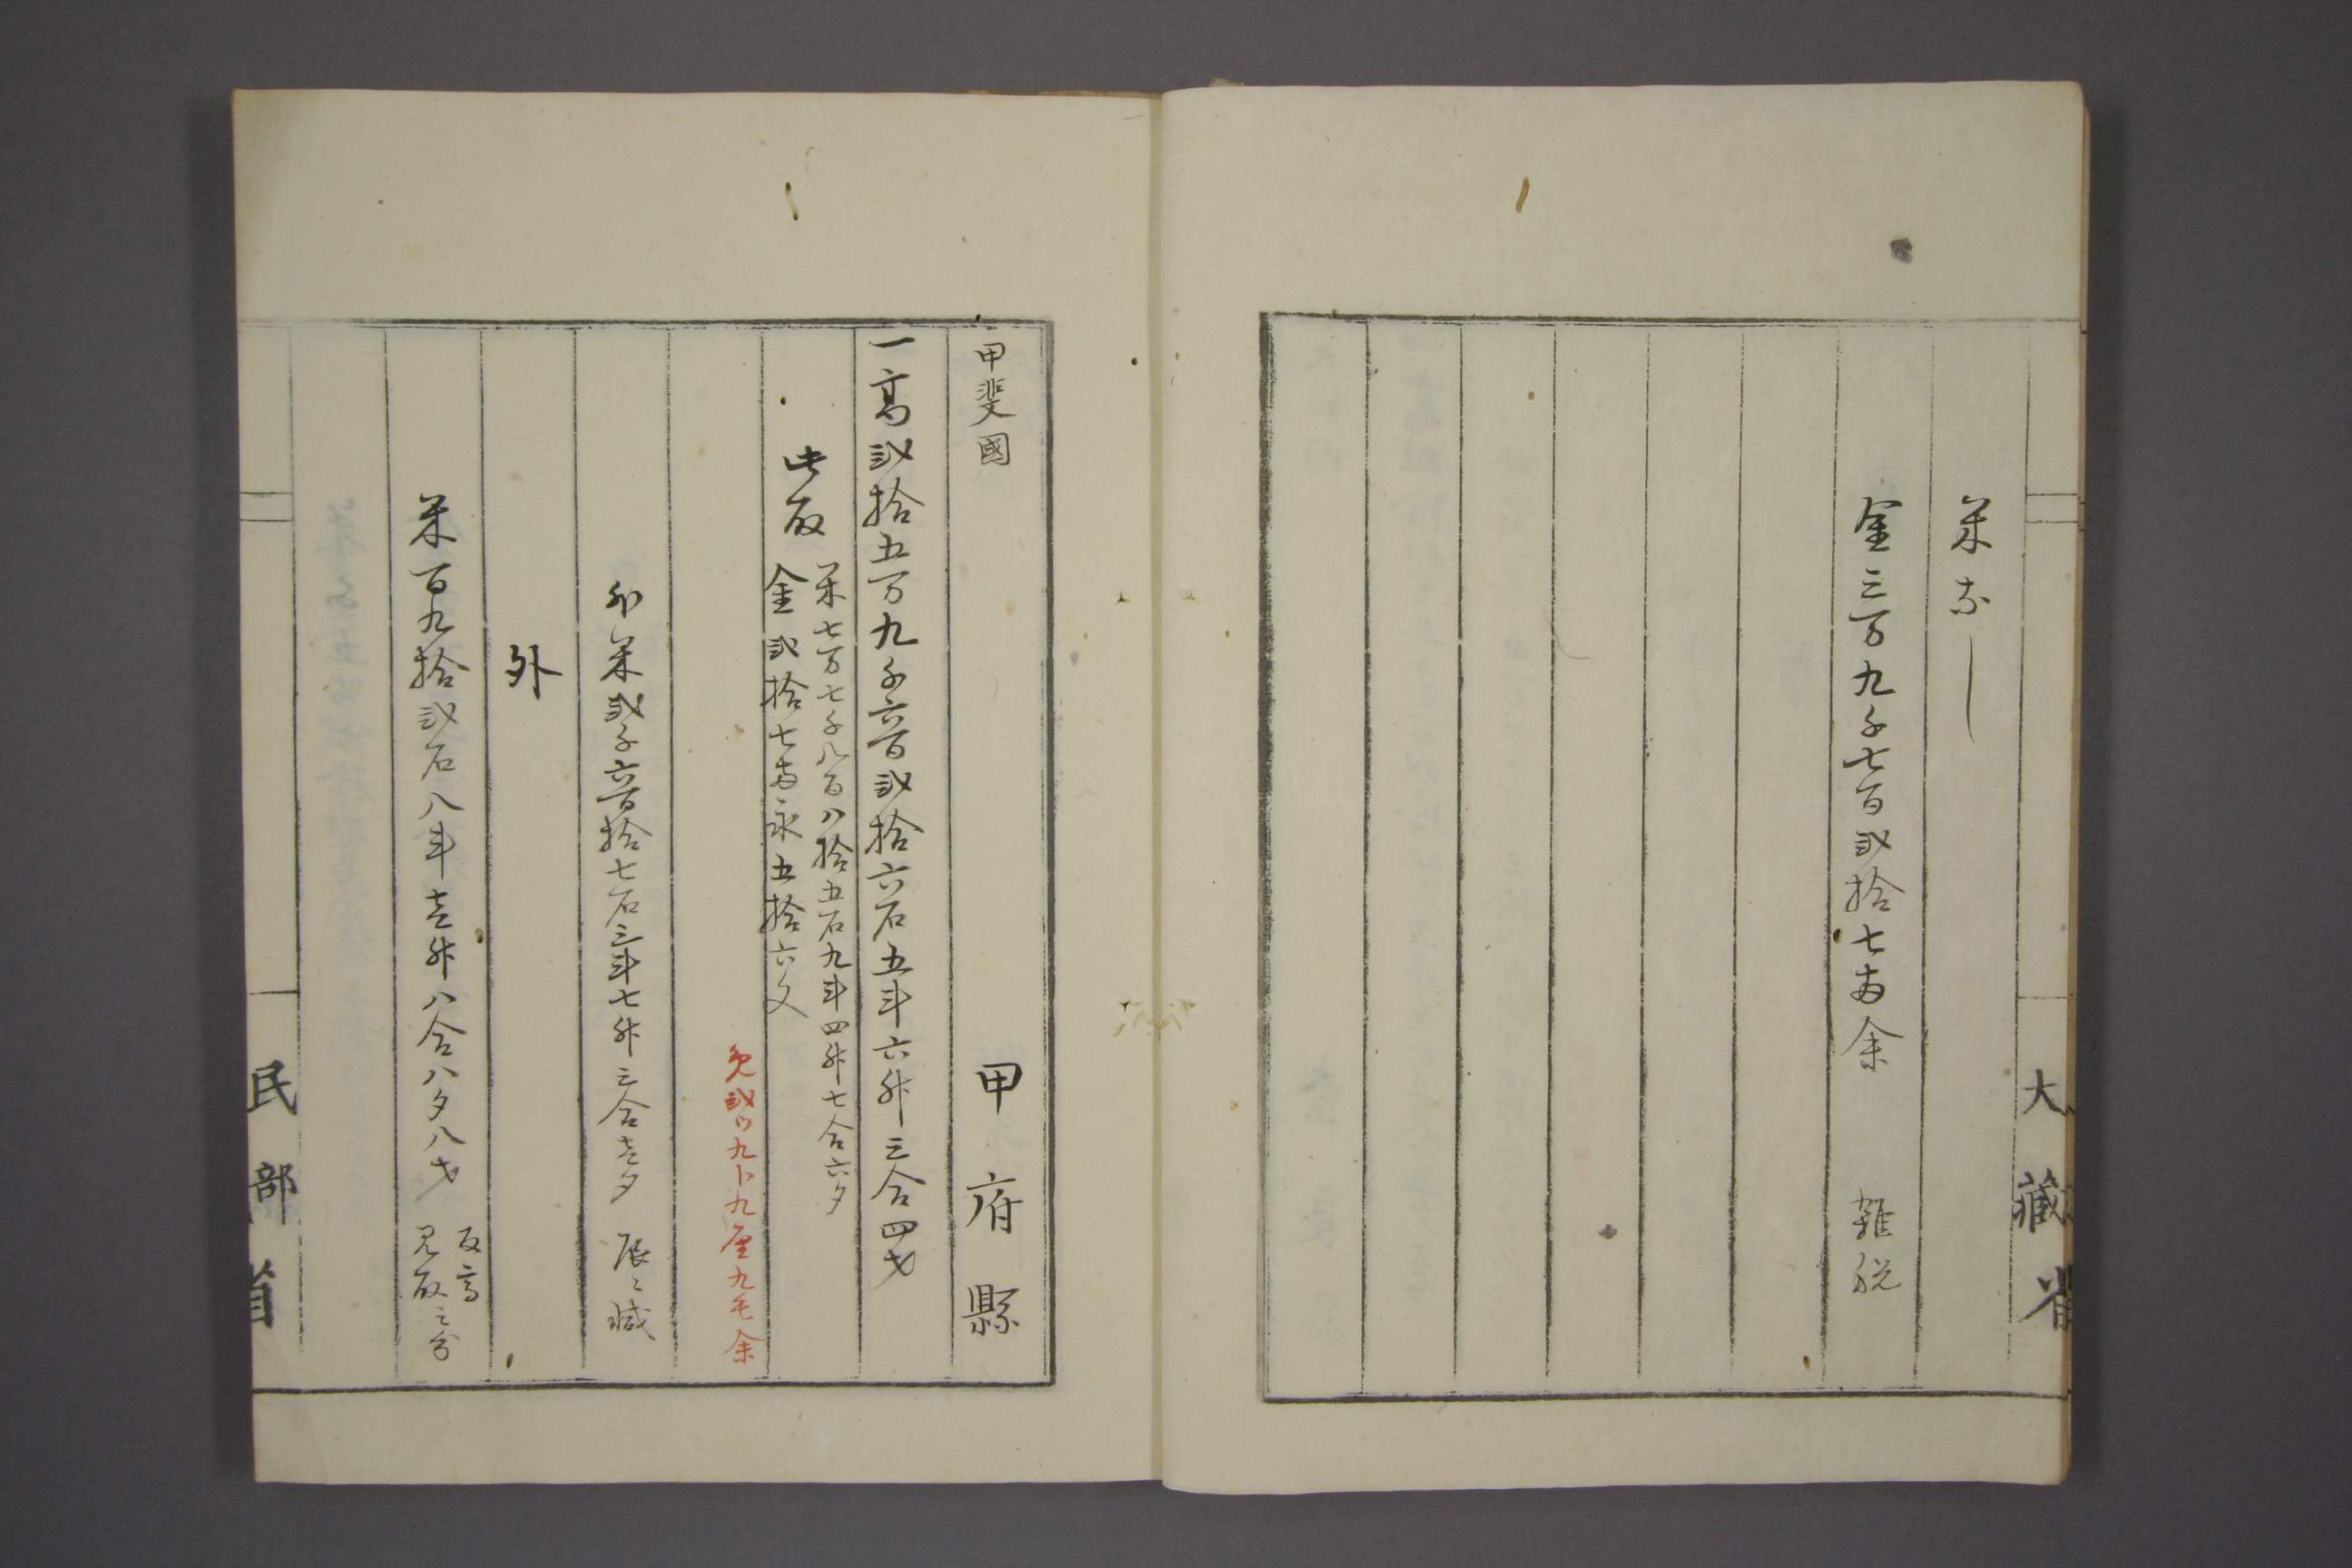 大藏省
米なし
金三万九千七百弐拾七両余　雑税
甲斐國　甲府縣
一高弐拾五万九千六百弐拾六石五斗六升三合四才
此取
米七万七千八百八拾五石九斗四升七合六夕
金弐拾七両永五拾六文
免弐ツ九卜九厘九毛余
内米弐千六百拾七石三斗七升三合壱夕　辰ゟ減
外
米百九拾弐石八斗壱升八合八夕八才
反高
見取之分
民部省